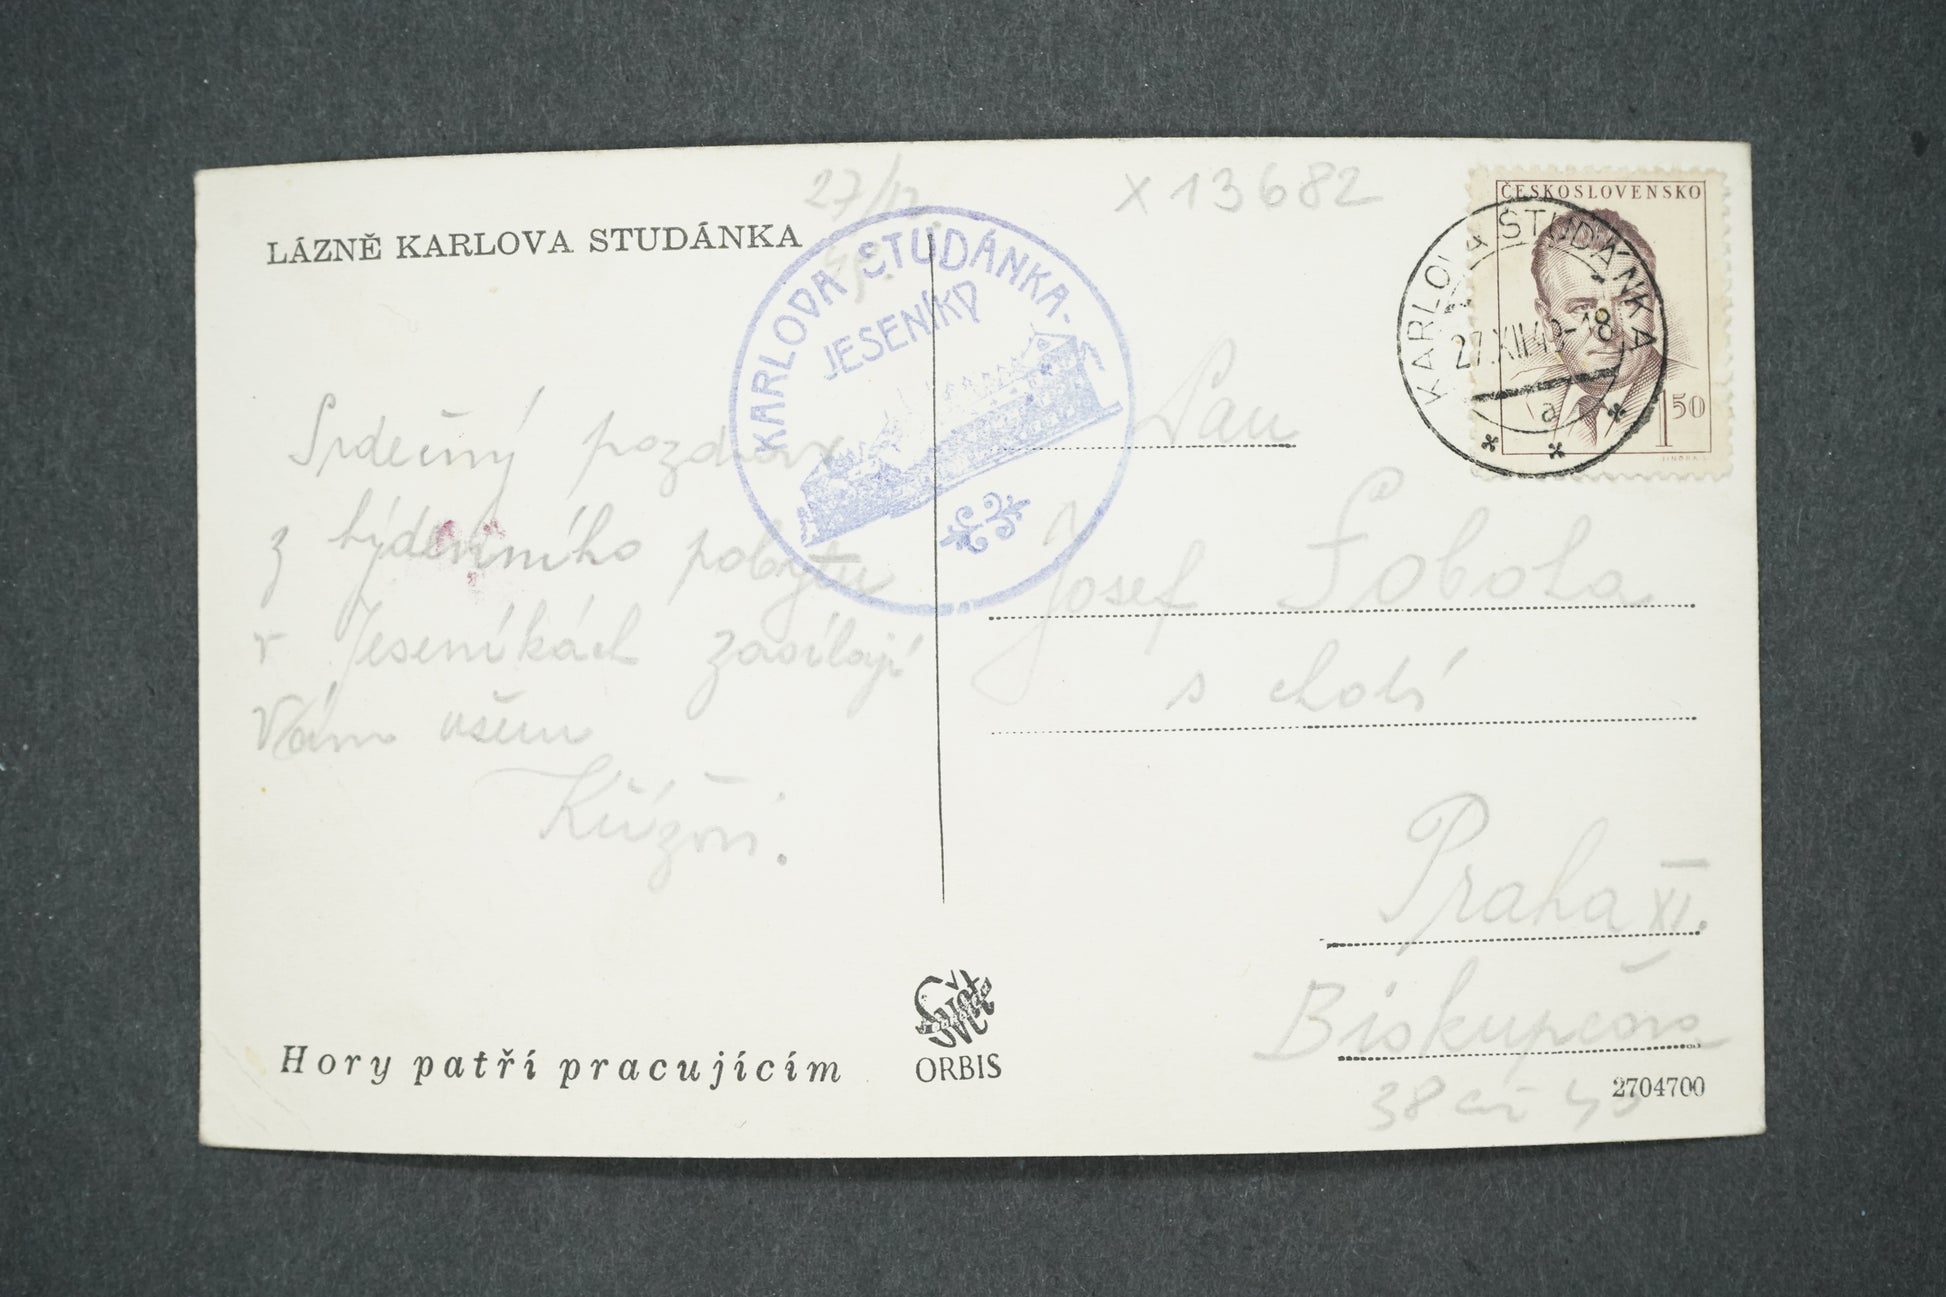 27/12
X 13682
LÁZNĚ KARLOVA STUDÁNKA
KARLOVA STUDÁNKA.
JESENÍKY
ČESKOSLOVENSKO
1 50
KARLOVA STUDÁNKA
27.XII.49-18
a
Srdečný pozdrav
z týdenního pobytu
v Jeseníkách zasílají
Vám všem
Křížovi.
Pan
Josef Sobota
s chotí
Praha XI.
Biskupcova
38
Hory patří pracujícím
Svět
ORBIS
2704700